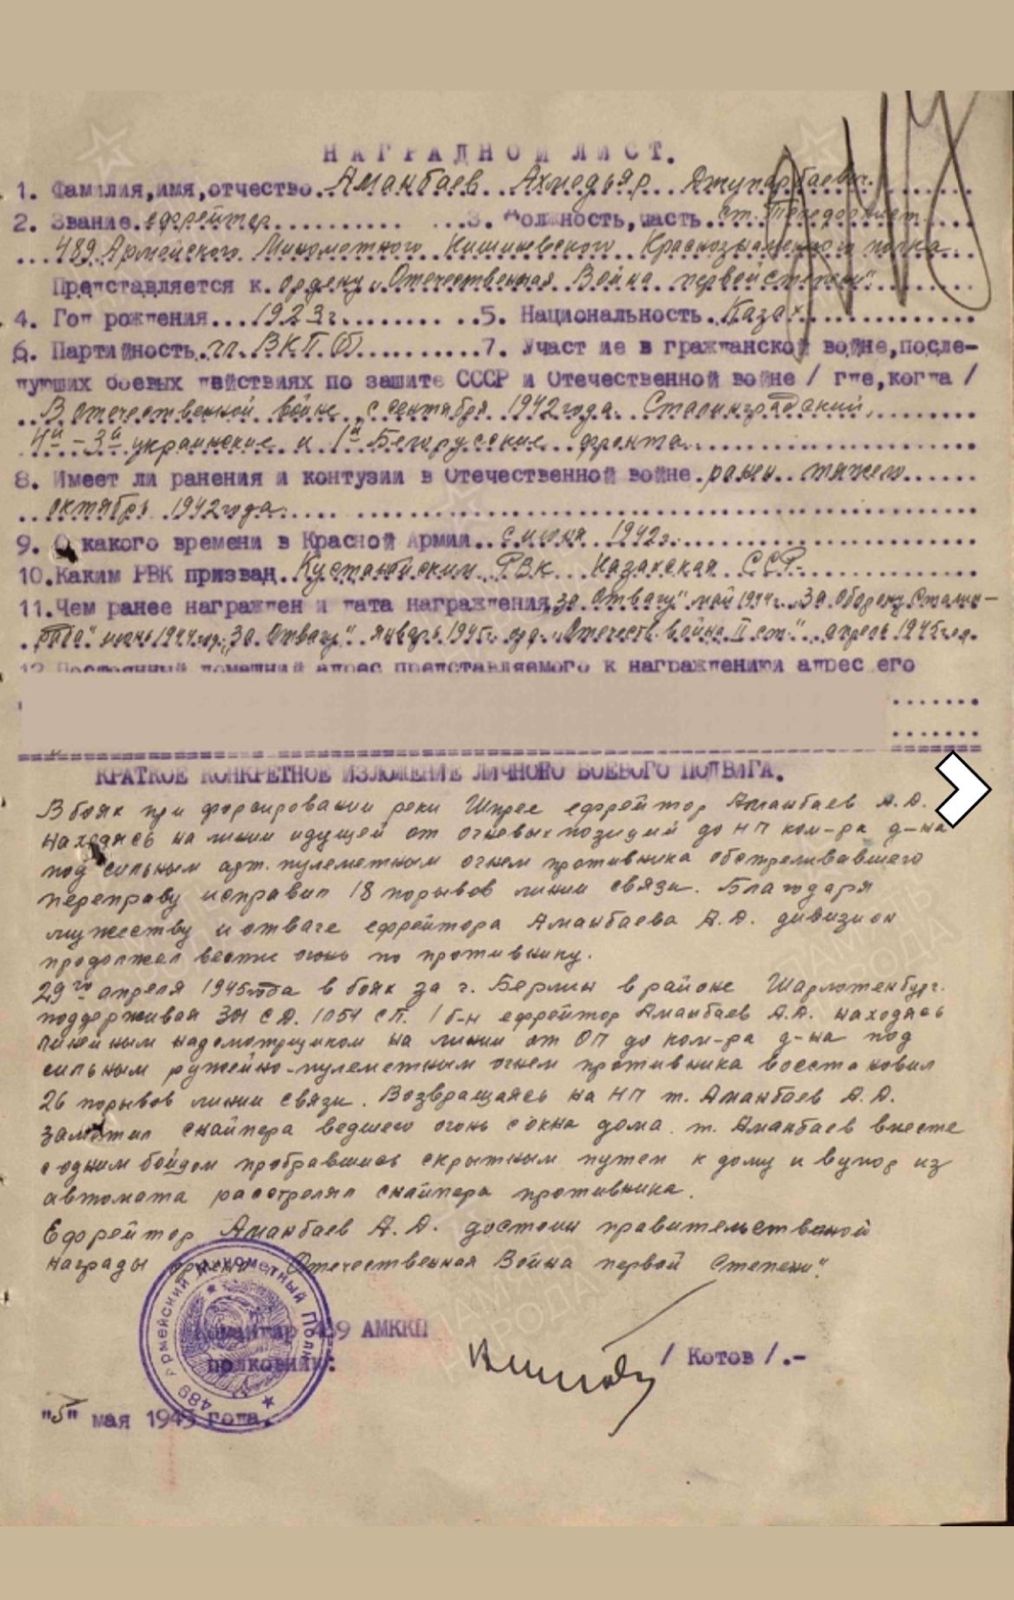 НАГРАДНОЙ ЛИСТ.
1. Фамилия,имя,отчество Аманбаев Ахмедьяр
2. Звание ефрейтор 3. Должность,часть ст. Телефонист
489 Армейского Минометного Кишиневского Краснознаменного полка
Представляется к ордену „Отечественная Война первой степени"
4. Год рождения 1923г 5. Национальность Казах
6. Партийность чл. ВКП(б) 7. Участие в гражданской войне,после-
дующих боевых действиях по защите СССР и Отечественной войне / где,когда /
В отечественной войне с сентября 1942 года. Сталинградский,
4й - 3й украинские и 1й Белорусские фронта
8. Имеет ли ранения и контузии в Отечественной войне ранен тяжело
октябрь 1942 года
9. С какого времени в Красной Армии с июня 1942г.
10. Каким РВК призван Кустанайским РВК Казахская ССР
11. Чем ранее награжден и дата награждения „За Отвагу" май 1944г. „За Оборону Сталин-
града" июнь 1944 год, „За Отвагу" январь 1945 года „Отечеств. война II ст." апрель 1945 год
12. Постоянный домашний адрес представляемого к награждению и адрес его
КРАТКОЕ КОНКРЕТНОЕ ИЗЛОЖЕНИЕ ЛИЧНОГО БОЕВОГО ПОДВИГА.
В боях при форсировании реки Шпрее ефрейтор Аманбаев А.Д.
находясь на линии идущей от огневых позиций до НП ком-ра д-на
под сильным арт. пулеметным огнем противника обстреливавшего
переправу исправил 18 порывов линии связи. Благодаря
мужеству и отваге ефрейтора Аманбаева А.Д. дивизион
продолжал вести огонь по противнику.
29го апреля 1945 года в боях за г. Берлин в районе Шарлотенбург.
поддерживая 301 СД. 1054 СП. 1 б-н ефрейтор Аманбаев А.Д. находясь
линейным надсмотрщиком на линии от ОП до ком-ра д-на под
сильным ружейно-пулеметным огнем противника восстановил
26 порывов линии связи. Возвращаясь на НП т. Аманбаев А.Д.
заметил снайпера ведшего огонь с окна дома. т. Аманбаев вместе
с одним бойцом пробравшись скрытным путем к дому и в упор из
автомата расстрелял снайпера противника.
Ефрейтор Аманбаев А.Д. достоин правительственной
награды ордена „Отечественная Война первой Степени".
489 Армейский Минометный Полк
Командир 489 АМККП
полковник: / Котов /.-
"5" мая 1945 года.